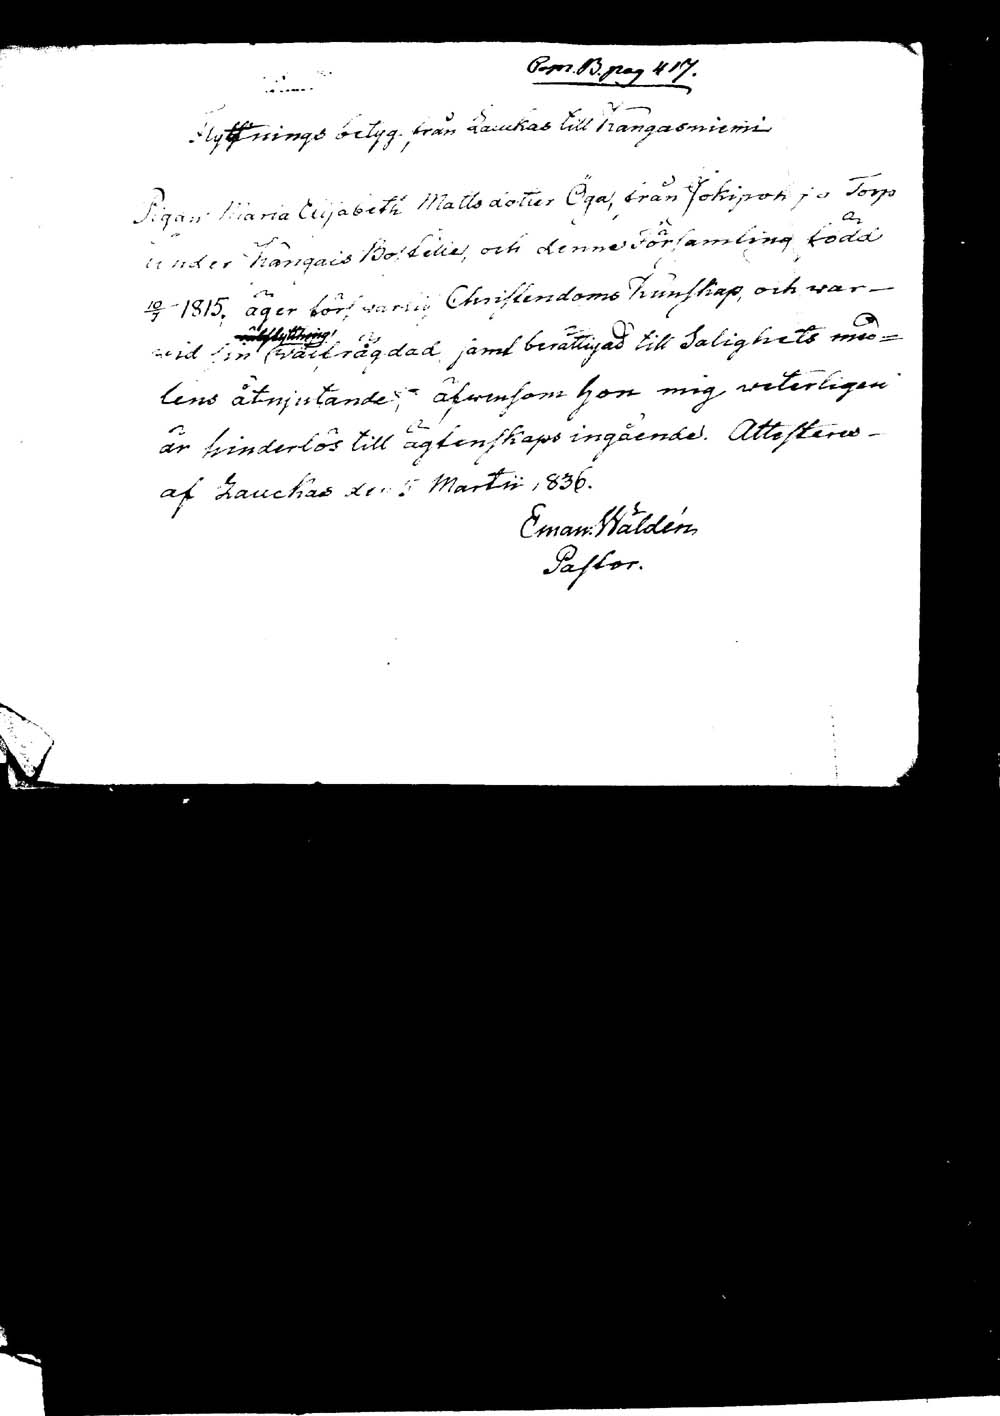 Com. B. pag 417.
Flyttnings betyg från Laukas till Kangasniemi
Pigan Maria Elisabeth Matts dotter Öga, från Jokipohja Torp
under Kangais Boställe, och denne Församling född
10/7 1815, äger försvarlig Christendoms Kunskap, och war-
wid sin utflyttning oväldfrägdad, jemt berättigad till Salighets med=
lens åtnjutande; äfwensom hon mig veterligen
är hinderlös till ägtenskaps ingående. Attesteras
af Lauckas den 5 Martii 1836.
Eman: Wäldén
Pastor.